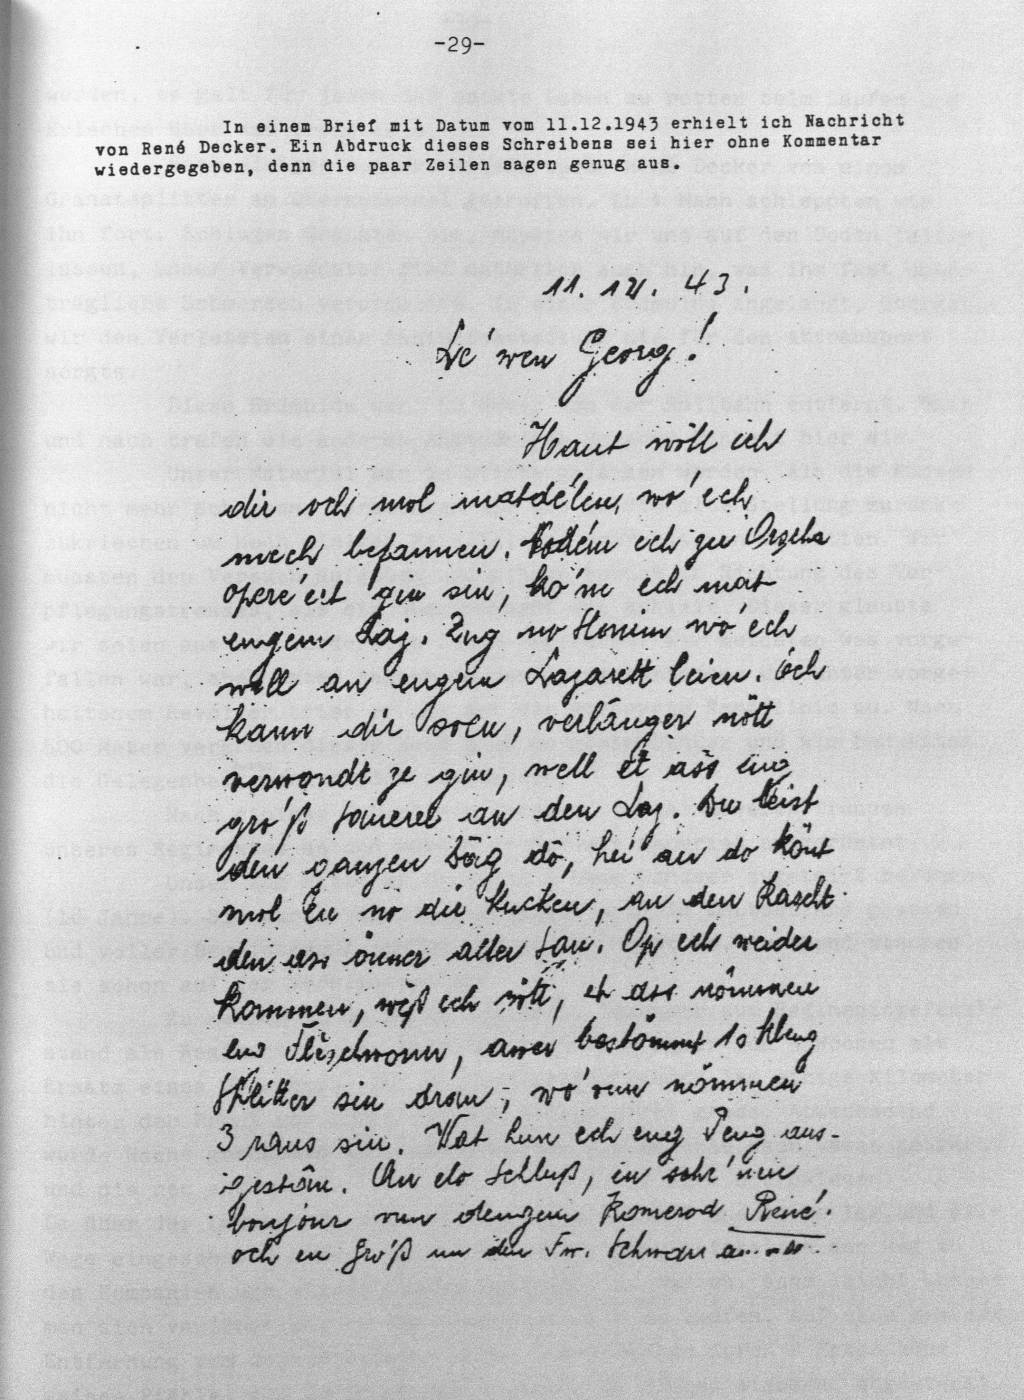 -29-
In einem Brief mit Datum vom 11.12.1943 erhielt ich Nachricht
von René Decker. Ein Abdruck dieses Schreibens sei hier ohne Kommentar
wiedergegeben, denn die paar Zeilen sagen genug aus.
11. 12. 43.
Le'wen Georg!
Haut wöll ech
dir och mol matdélen, wo' ech
mech befannen. Nodém ech zu Orscha
operéert gin sin, ko'm ech mat
engem Laz. Zug no Honim wo' ech
well an engem Lazarett leien. Ech
kann dir soen, verlänger nött
verwondt ze gin, well et ass eng
gro'ß Sauerei an den Laz. Du leist
den ganzen Dag do, hei an do könt
mol en no dir kucken, an den Kascht
den ass önner aller Sau. Op ech weider
kommen, wéß ech nött, et ass nömmen
eng Fléschwonn, awer bestömmt 10 kleng
Splitter sin dran, wo'vun nömmen
3 raus sin. Wat hun ech eng Peng aus-
gestan. An elo Schluß, en sche'nen
bonjour vun dengem Komerod René.
och en Gro'ß un den Fw. Schwan